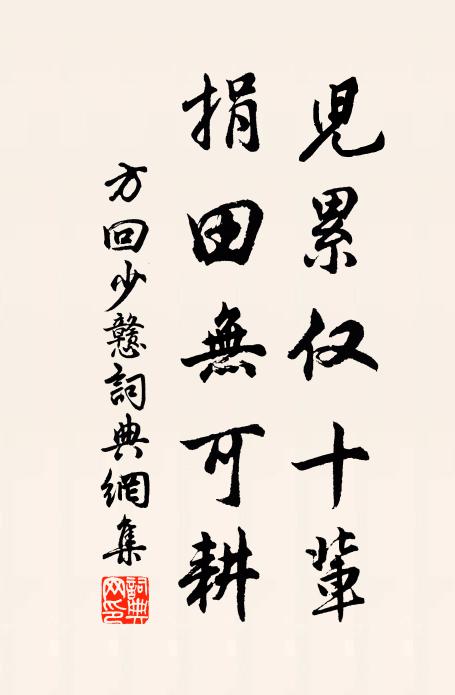 児累仅十輩
捐田無可耕
方回少戆詞典網集
詞典網印